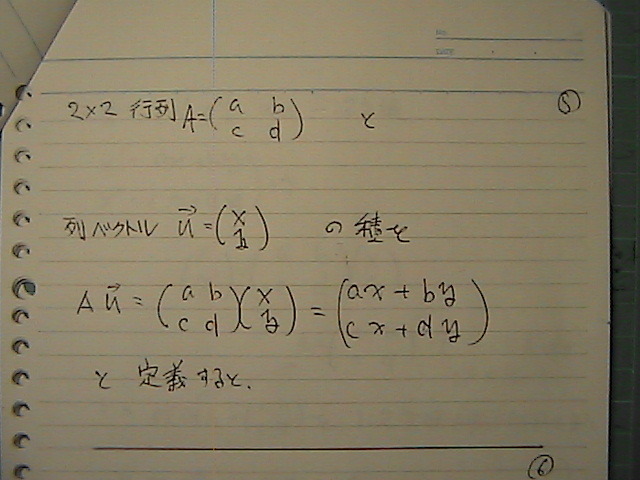 No.
DATE
⑤
2×2 行列 A=(a b
c d) と
列ベクトル u→=(x
y) の積を
A u→ = (a b
c d)(x
y) = (ax + by
cx + dy)
と 定義すると.
⑥